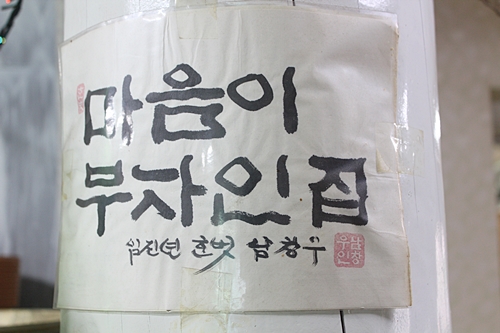 마음이
부자인집
임진년 흔벗 남창우
남창
우인